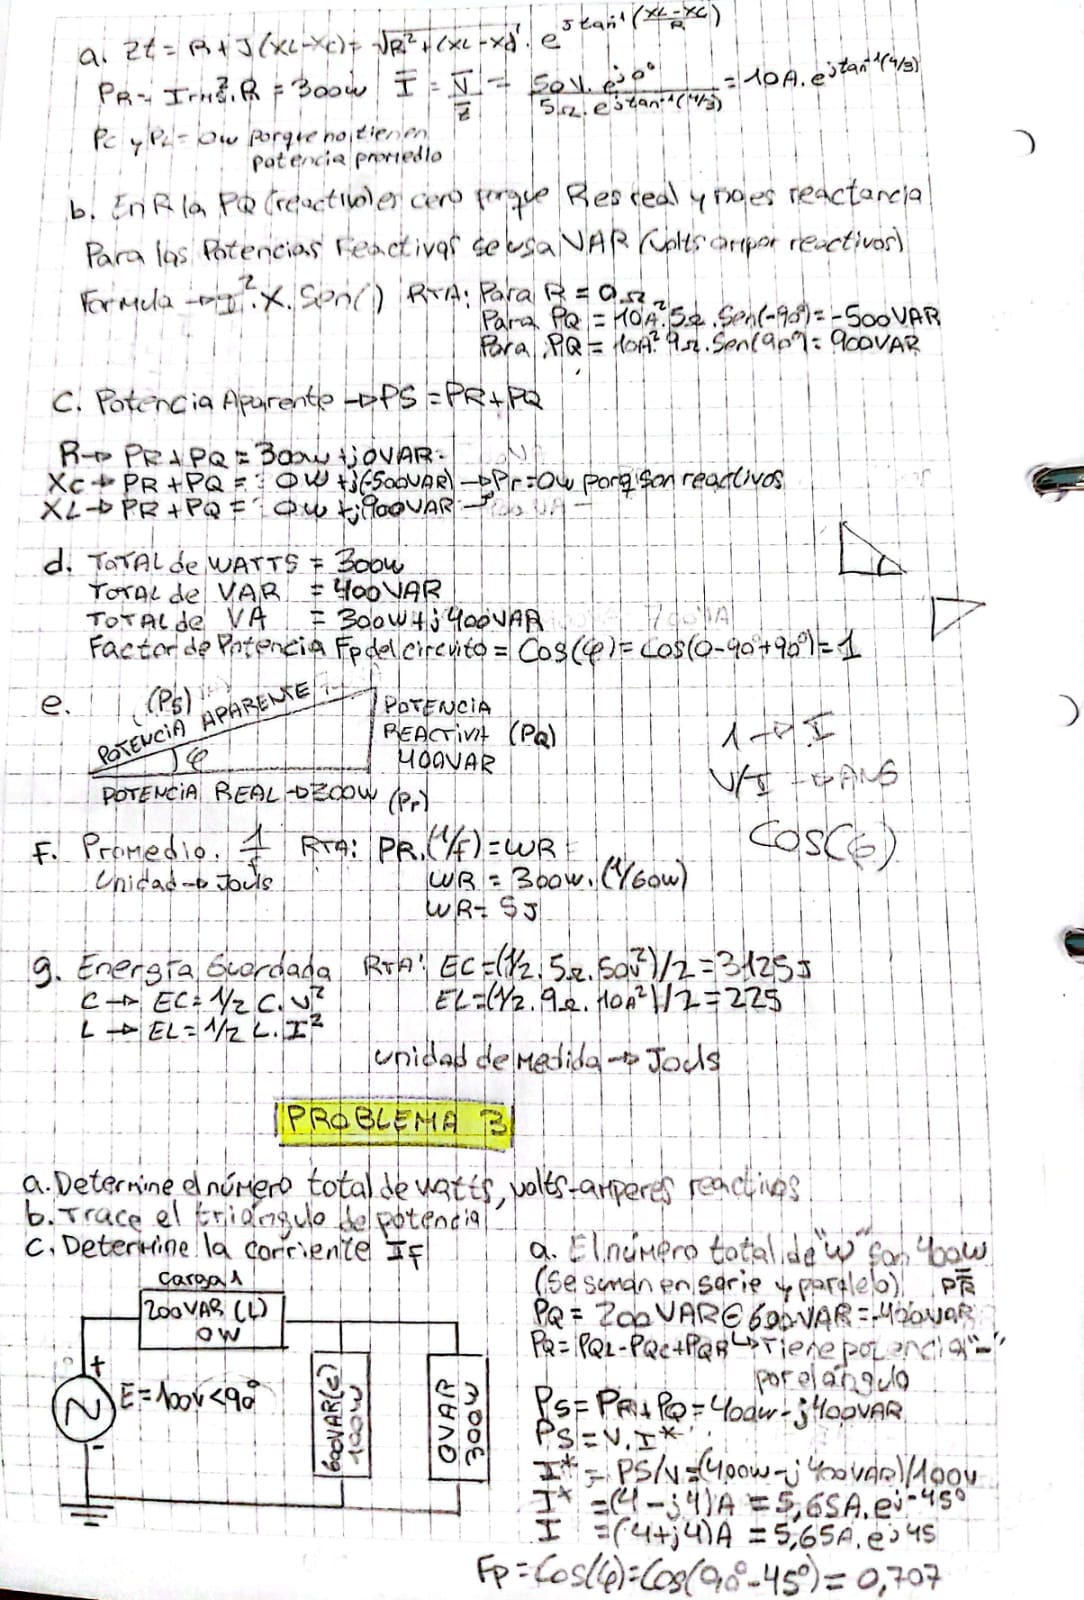 a. Zt = R + J(XL-XC) = √R²+(XL-XC)² . e^Jtan⁻¹(XL-XC/R)
PR = Irms².R = 300w   Ī = V̄/Z̄ = 50V.e^j0°/5Ω.e^jtan⁻¹(4/3) = 10A.e^jtan⁻¹(4/3)
PC y PL = 0w porque no tienen
potencia promedio
b. En R la PQ (reactiva) es cero porque R es real y no es reactancia
Para las Potencias reactivas se usa VAR (volts ampor reactivos)
Formula → I².X.Sen()   RTA: Para R = 0Ω
Para PQ = 10A².5Ω.Sen(-90°) = -500VAR
Para PQ = 10A².9Ω.Sen(90°) = 900VAR
C. Potencia Aparente → PS = PR + PQ
R → PR + PQ = 300w + j0VAR
XC → PR + PQ = 0w + j(-500VAR) → Pr = 0w porq son reactivos
XL → PR + PQ = 0w + j900VAR
d. TOTAL de WATTS = 300w
TOTAL de VAR = 400VAR
TOTAL de VA = 300w + j400VAR
Factor de Potencia Fp del circuito = Cos(φ) = Cos(0-90°+90°) = 1
e. (PS)
POTENCIA APARENTE
φ
POTENCIA
REACTIVA (PQ)
400VAR
POTENCIA REAL → 300w (Pr)
1 → I
V/I → ANS
Cos(φ)
F. Promedio. 1/f   RTA: PR.(1/f) = WR
Unidad → Jouls   WR = 300w.(1/60w)
WR = 5J
g. Energía Guardada   RTA: EC = (1/2.5Ω.50V²)/2 = 3125J
C → EC = 1/2 C.V²   EL = (1/2.9Ω.10A²)/2 = 225
L → EL = 1/2 L.I²
unidad de medida → Jouls
PROBLEMA 3
a. Determine el número total de watts, volts-amperes reactivos
b. Trace el triángulo de potencia
c. Determine la corriente If
carga 1
200VAR (L)
0W
E = 100V<90°
+
-
600VAR(C)
100W
0VAR
300W
a. El número total de "w" son 400w
(Se suman en serie y paralelo) PR
PQ = 200VAR ⊖ 600VAR = -400VAR
PQ = PQL - PQC + PQR ↳ Tiene potencia "-"
por el ángulo
PS = PR + PQ = 400w - j400VAR
PS = V.I*
I* = PS/V = (400w - j400VAR)/100V
I* = (4-j4)A = 5,65A.e^j-45°
I = (4+j4)A = 5,65A.e^j45
Fp = Cos(φ) = Cos(90°-45°) = 0,707